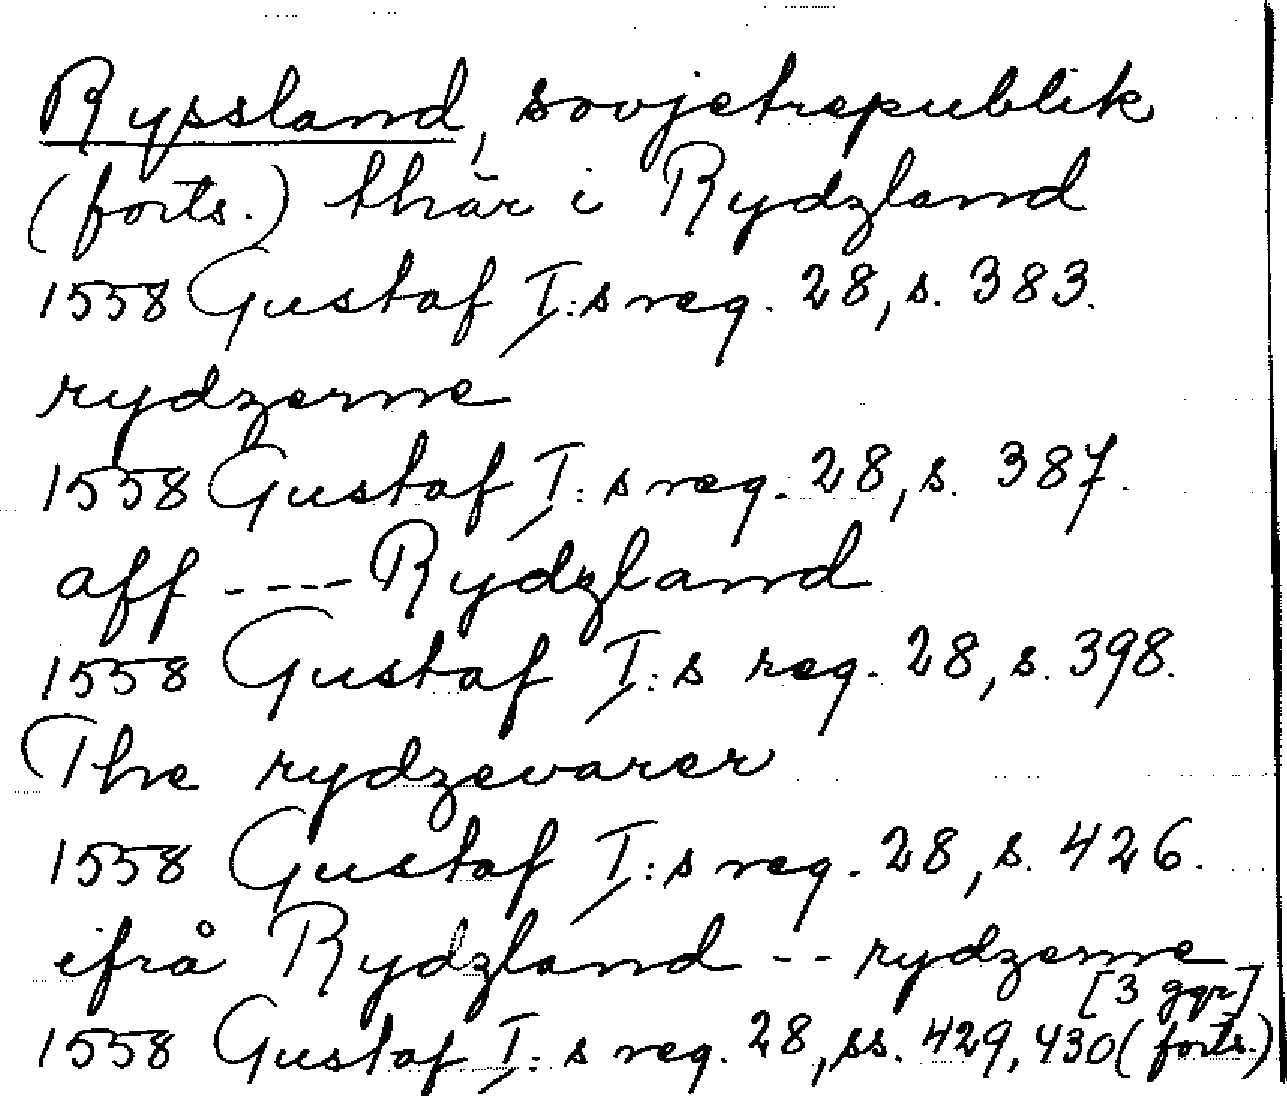 Ryssland, sovjetrepublik
(forts.) thär i Rydzland
1558 Gustaf I:s reg. 28, s. 383.
rydzerne
1558 Gustaf I:s reg. 28, s. 387.
aff ---- Rydzland
1558 Gustaf I:s reg. 28, s. 398.
The rydzevarer
1558 Gustaf I:s reg. 28, s. 426.
ifrå Rydzland -- rydzerne
[3 ggr]
1558 Gustaf I:s reg. 28, ss. 429, 430 (forts.)